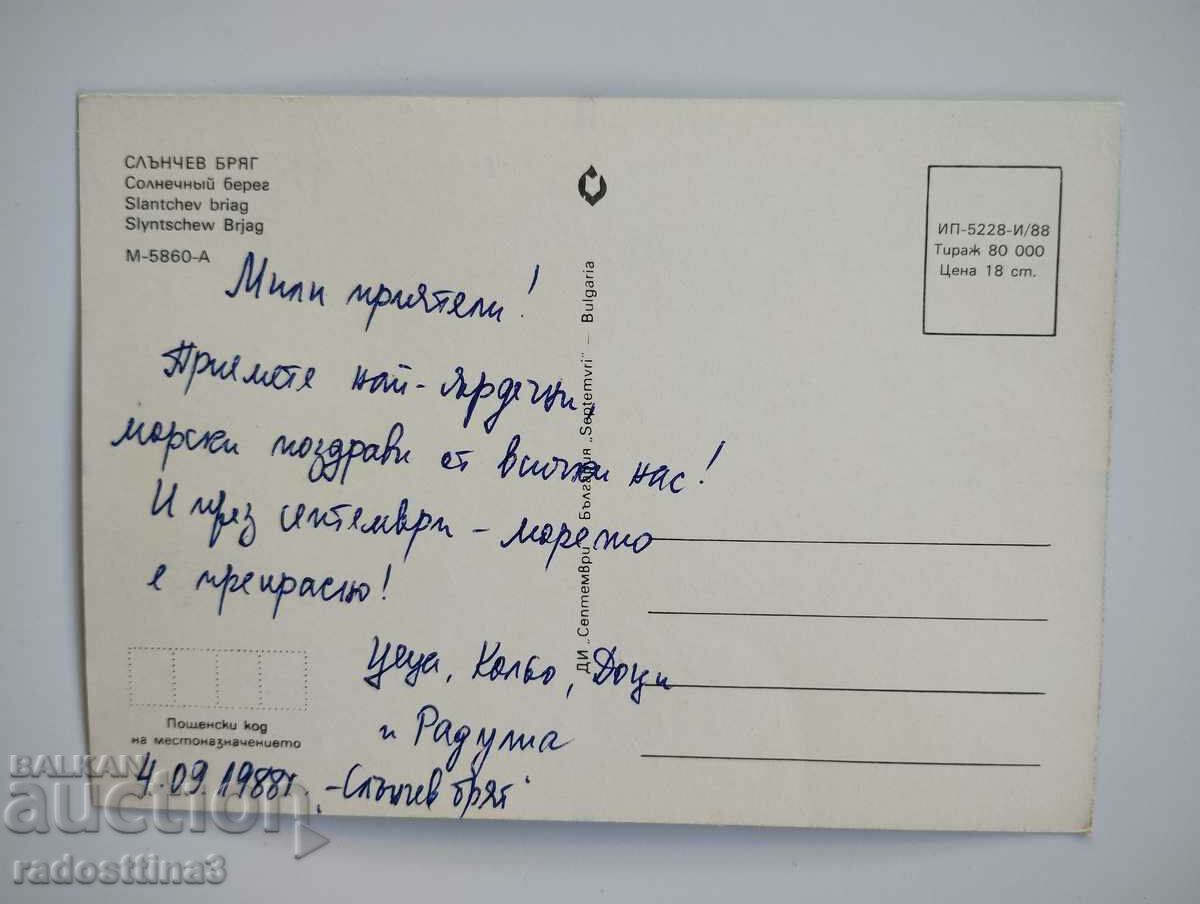 СЛЪНЧЕВ БРЯГ
Солнечный берег
Slantchev briag
Slyntschew Brjag
М-5860-А
ИП-5228-И/88
Тираж 80 000
Цена 18 ст.
ДИ „Септември" България „Septemvri" – Bulgaria
Мили приятели!
Приемете най-сърдечни,
морски поздрави от всички нас!
И през септември - морето
е прекрасно!
Цеца, Кольо, Доци
и Радула
Пощенски код
на местоназначението
4.09.1988г. - Слънчев бряг
BALKAN
auction
radosttina3